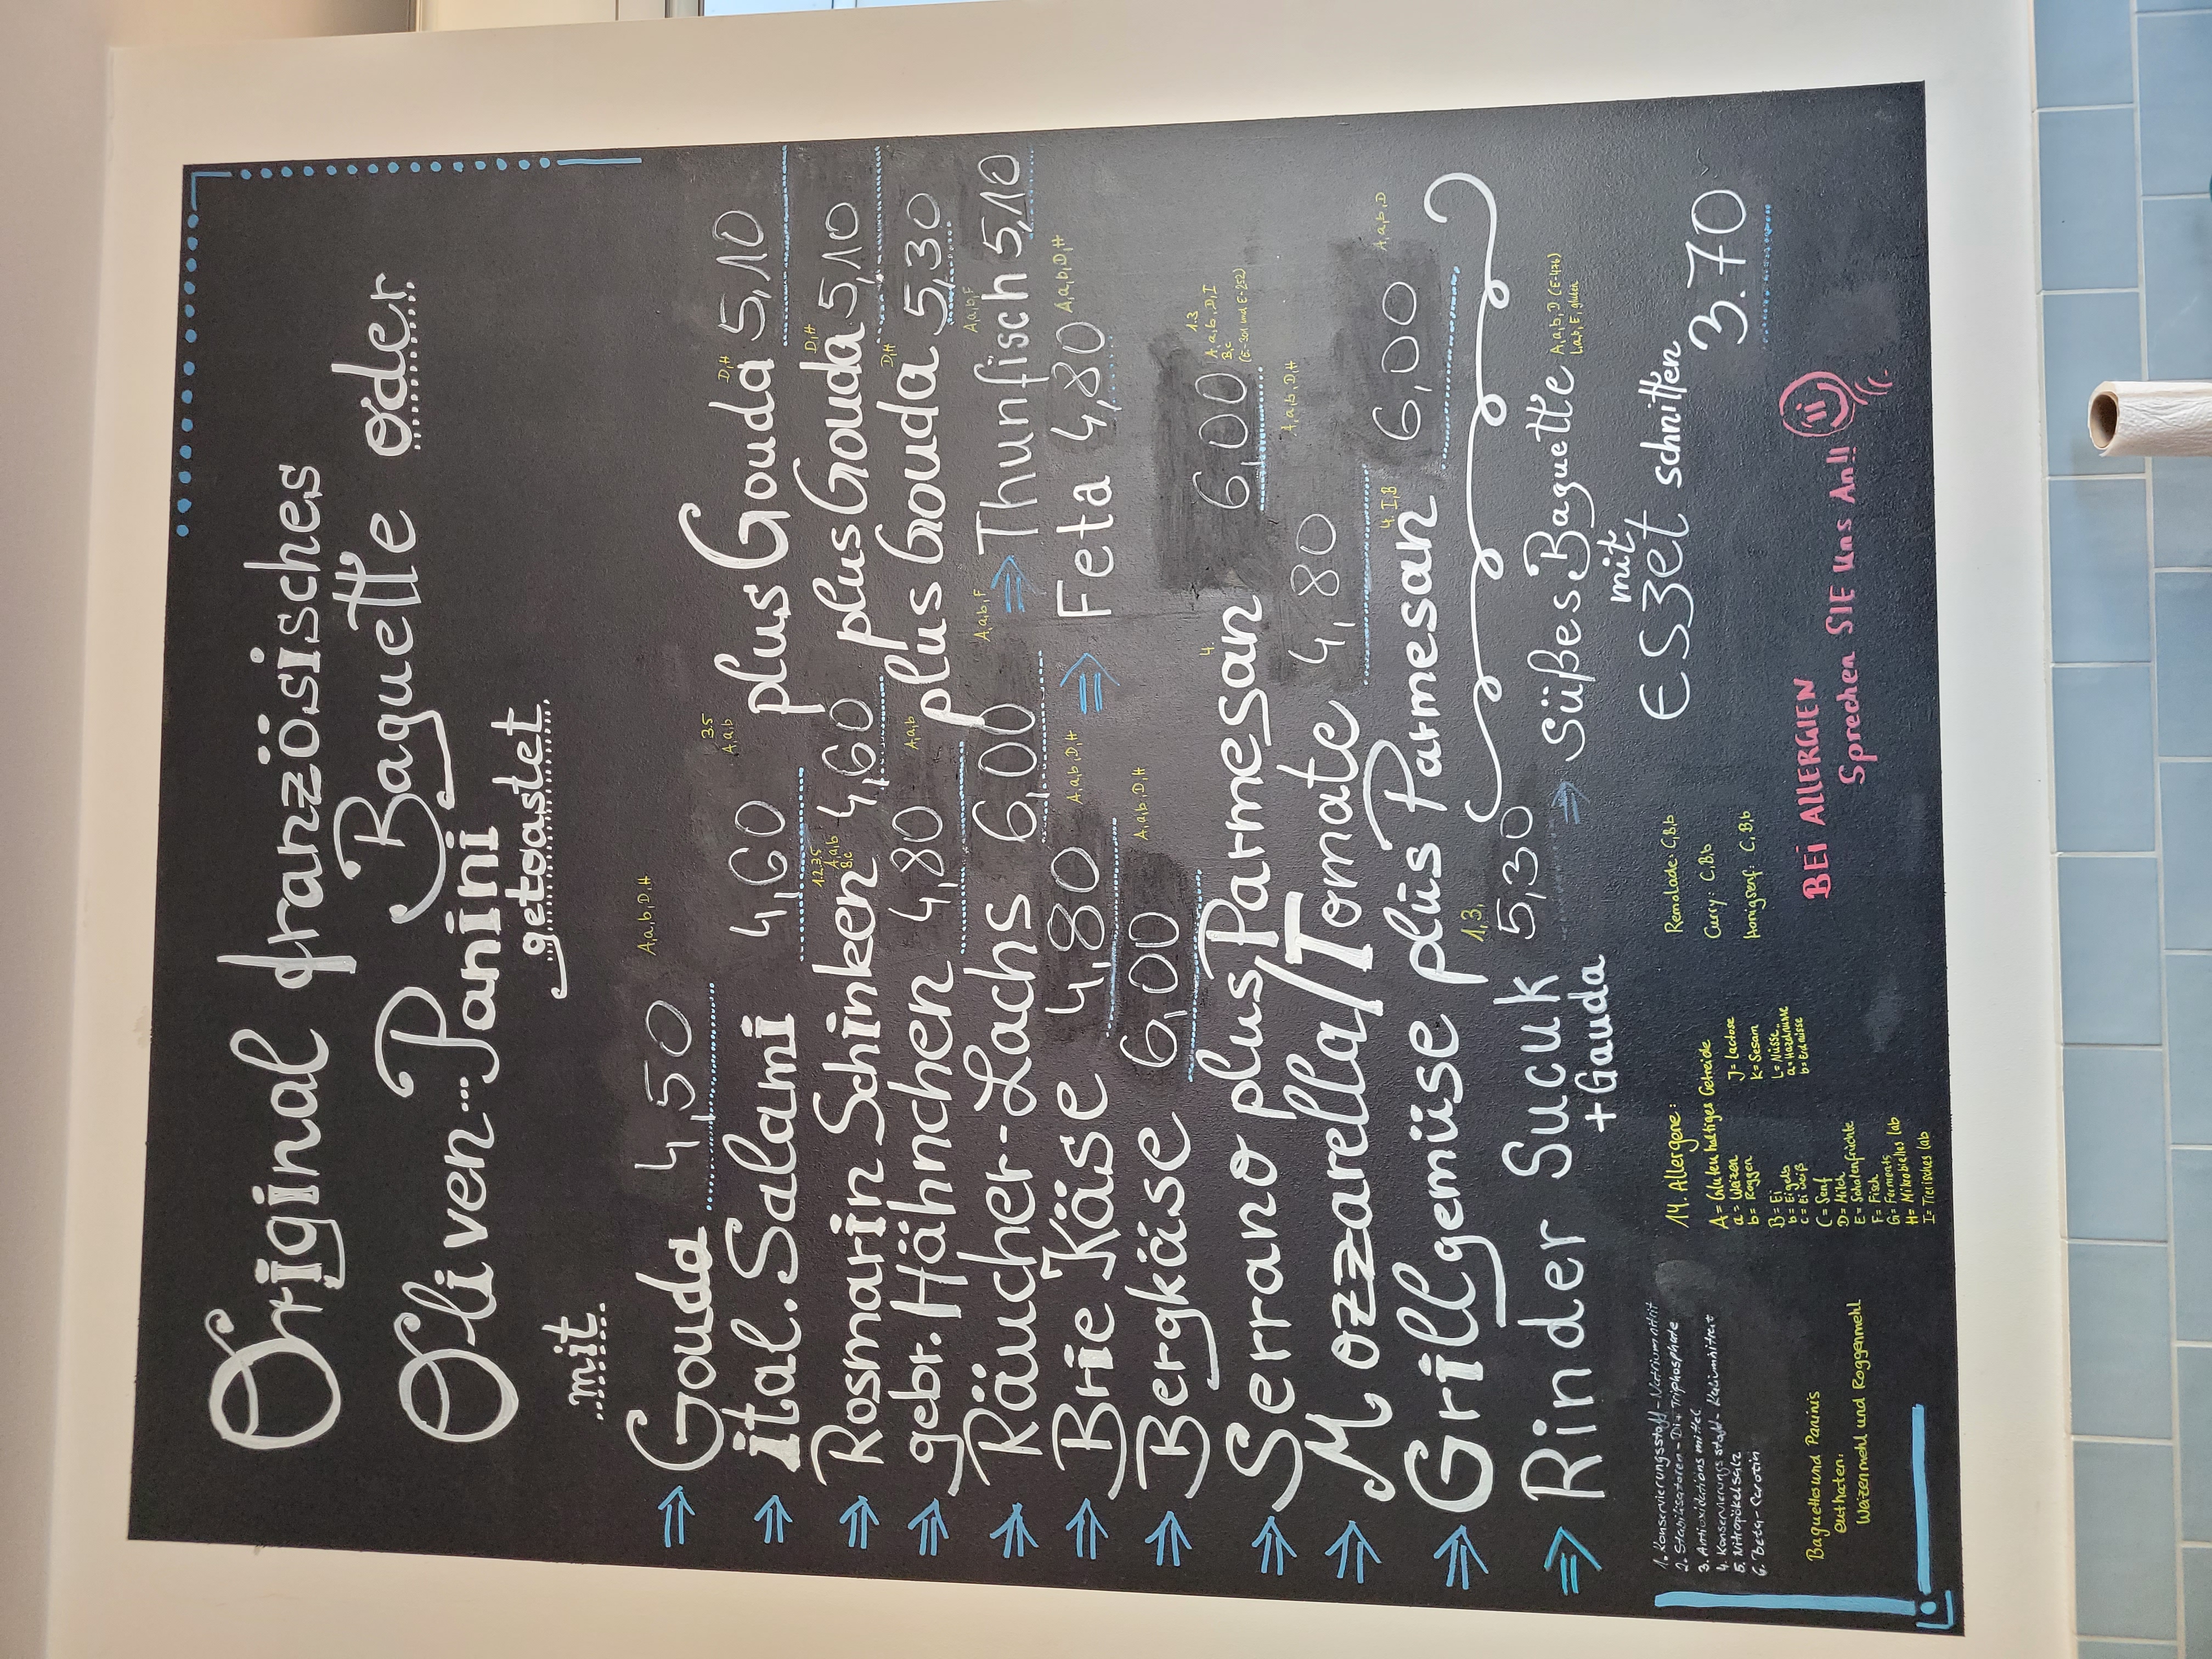 Original französisches
Baguette oder
Oliven-Panini
getoastet
mit
Gouda 4,50 A,a,b,D,H
ital. Salami 4,60 3.5 A,a,b plus Gouda 5,10 D,H
Rosmarin Schinken 4,60 1.2.3.5 A,a,b B,c plus Gouda 5,10 D,H
gebr. Hähnchen 4,80 A,a,b plus Gouda 5,30 D,H
Räucher-Lachs 6,00 A,a,b,F ⇒ Thunfisch 5,10 A,a,b,F
Brie Käse 4,80 A,a,b,D,H ⇒ Feta 4,80 A,a,b,D,H
Bergkäse 6,00 A,a,b,D,H
Serrano plus Parmesan 4. 6,00 1.3 A,a,b,D,I B,c (E-301 und E-252)
Mozzarella/Tomate 4,80 A,a,b,D,H
Grillgemüse plus Parmesan 4. I,B 6,00 A,a,b,D
Rinder Sucuk 5,30 1,3,
+Gauda
⇒ Süßes Baguette A,a,b,D (E-476)
L,a,b,E, gluten
mit
ESZet schnitten
3.70
1. Konservierungsstoff-Natriumnitrit
2. Stabilisatoren-Di+Triphosphate
3. Antioxidationsmittel
4. Konservierungsstoff-Kaliumnitrat
5. Nitropökelsalz
6. beta-Carotin
Baguettes und Paninis
enthaten:
Waizenmehl und Roggenmehl
14. Allergene:
A= Glutenhaltiges Getreide
a= Waizen
b= Roggen
B= Ei
b= Eigelb
c= Eiweiß
C= Senf
D= Milch
E= Schalenfrüchte
F= Fisch
G= Ferments
H= Mikrobielles lab
I= Tierisches lab
J= lactose
K= Sesam
L= Nüsse
a= Hazelnüsse
b= Erdnüsse
Remolade: C,B,b
Curry: C,B,b
Honigsenf: C,B,b
BEI ALLERGIEN
Sprechen SIE uns An!!